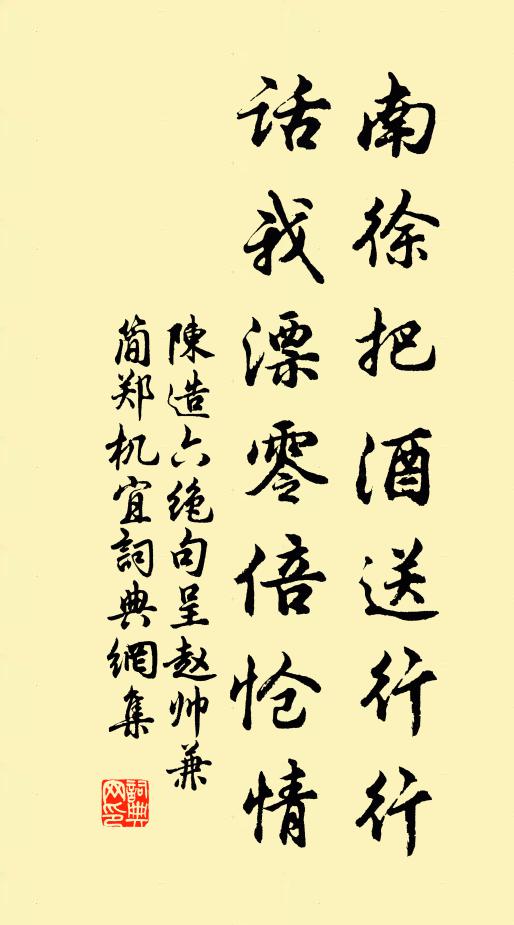 南徐把酒送行行
话我漂零倍怆情
陳造六绝句呈赵帅兼
简郑机宜詞典網集
詞典網印